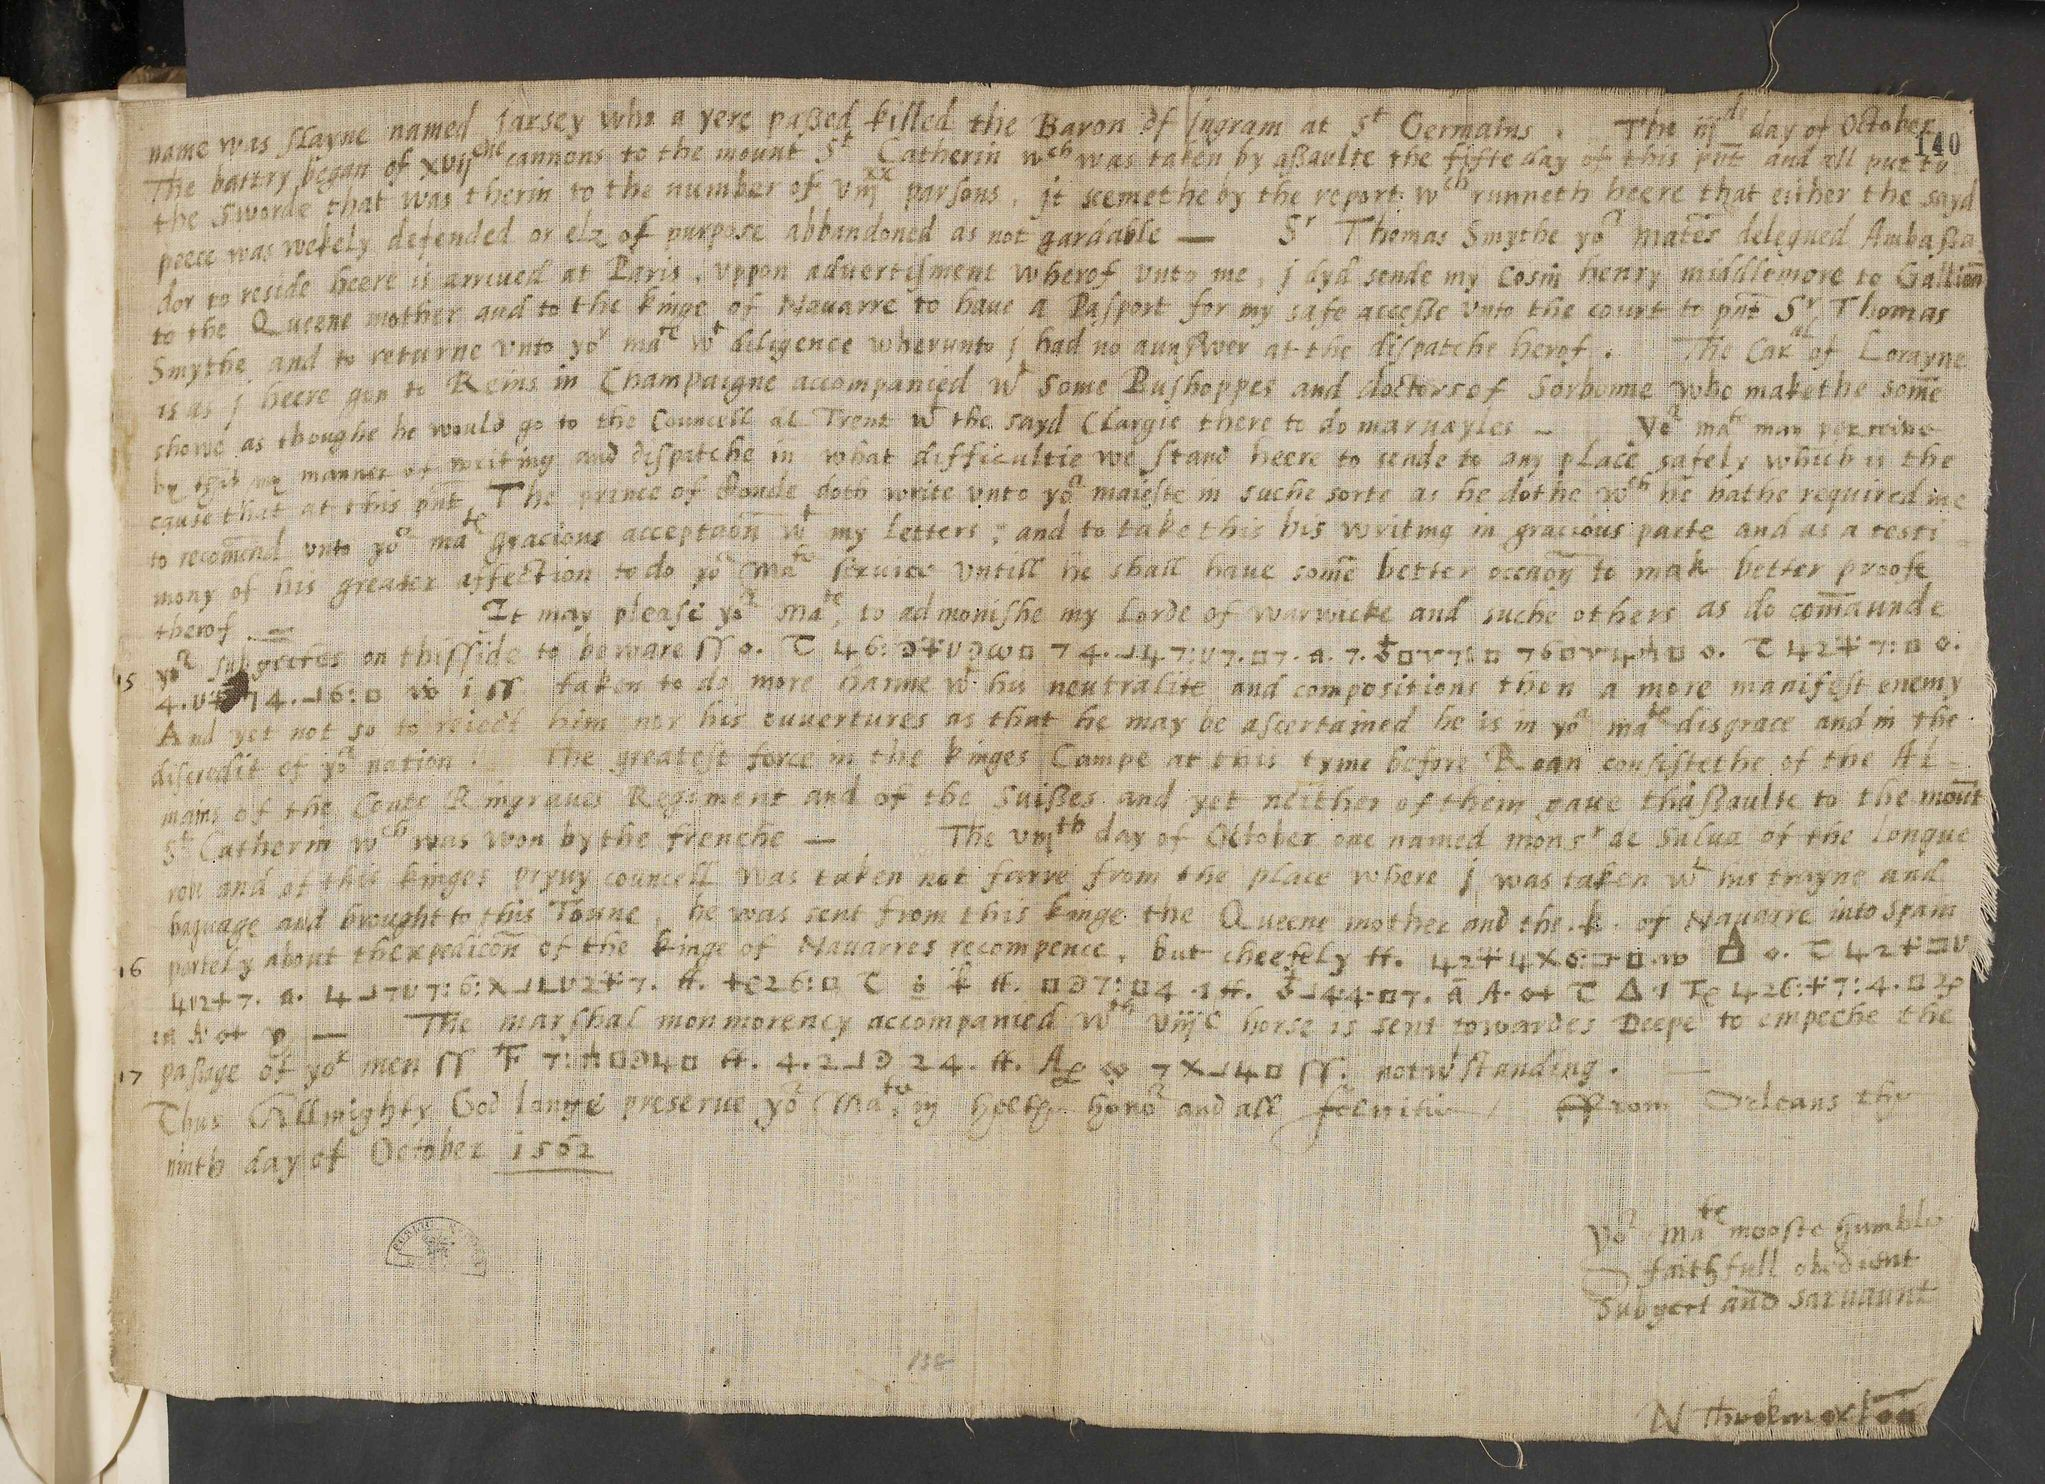 140
name was slayne named Jarsey who a yere passed killed the Baron of Jngram at St Germains . The iijde day of October
The battry began of xvijene cannons to the mount St Catherin wch was taken by assaulte the fifte day of this pnt and all put to
the sworde that was therin to the number of viijxx parsons . jt seemethe by the report wch runneth heere that either the sayd
peece was wekely defended or elz of purpose abbandoned as not gardable — Sr Thomas Smythe yor mates delegued Ambassa
dor to reside heere is arriued at Paris . vppon advertisment wherof vnto me , j dyd sende my Cosin henry middlemore to Gallion
to the Queene mother and to the kinge of Nauarre to have a Pasport for my safe accesse vnto the court to pnt Sr Thomas
Smythe and to returne vnto yor mate wt diligence wherunto j had no aunswer at the dispatche herof . The Caral of Lorayne
is as j heere gon to Reims in Champaigne accompanied wt some Bushoppes and doctors of Sorbonne who makethe some
showe as thoughe he would go to the Councell at Trent wt the sayd Clargie there to do maruayles — Yor mate may perceive
by this my manner of writing and dispatche in what difficultie we stand heere to sende to any place safely which is the
cause that at this pnt The prince of Conde doth write vnto yor maieste in suche sorte as he dothe wch he hathe required me
to recomend vnto yor mate gracious acceptaon wt my letters ; and to take this his writing in gracious parte and as a testi
mony of his greater affection to do yor Mate seruice vntill he shall haue some better occaon to mak better proofe
therof — It may please yor Mate, to admonishe my Lorde of warwicke and suche others as do comaunde
15 yor subgectes on thisside to beware
taken to do more harme wt his neutralite and compositions then a more manifest enemy
And yet not so to reiect him nor his ouuertures as that he may be ascertained he is in yor mate disgrace and in the
discredit of yor nation . The greatest force in the kinges Campe at this tyme before Roan consistethe of the Al-
mains of the Conte Ringraues Regiment and of the Suisses and yet neither of them gaue thassaulte to the mount
St Catherin wch was won by the frenche — The viijth day of October one named monsr de Salua of the longue
rou and of this kinges pryuy councell was taken not farre from the place where j was taken wt his trayne and
baguage and brought to this Toune , he was sent from this kinge the Queene mother and the . k . of Nauarre into Spain
16 partely about thexpedicon of the kinge of Nauarres recompence , but cheefely
— The marshal monmorency accompanied wth viijc horse is sent towardes Deepe to empeche the
17 passage of yor men notwtstanding . —
Thus Allmighty God longe preserue yor Mate, in helth honor and all felicitie / ffrom Orleans the
ninth day of October 1562
Yor mate mooste humble
faithfull obedient
Subgect and saruaunt
N Throkmorton